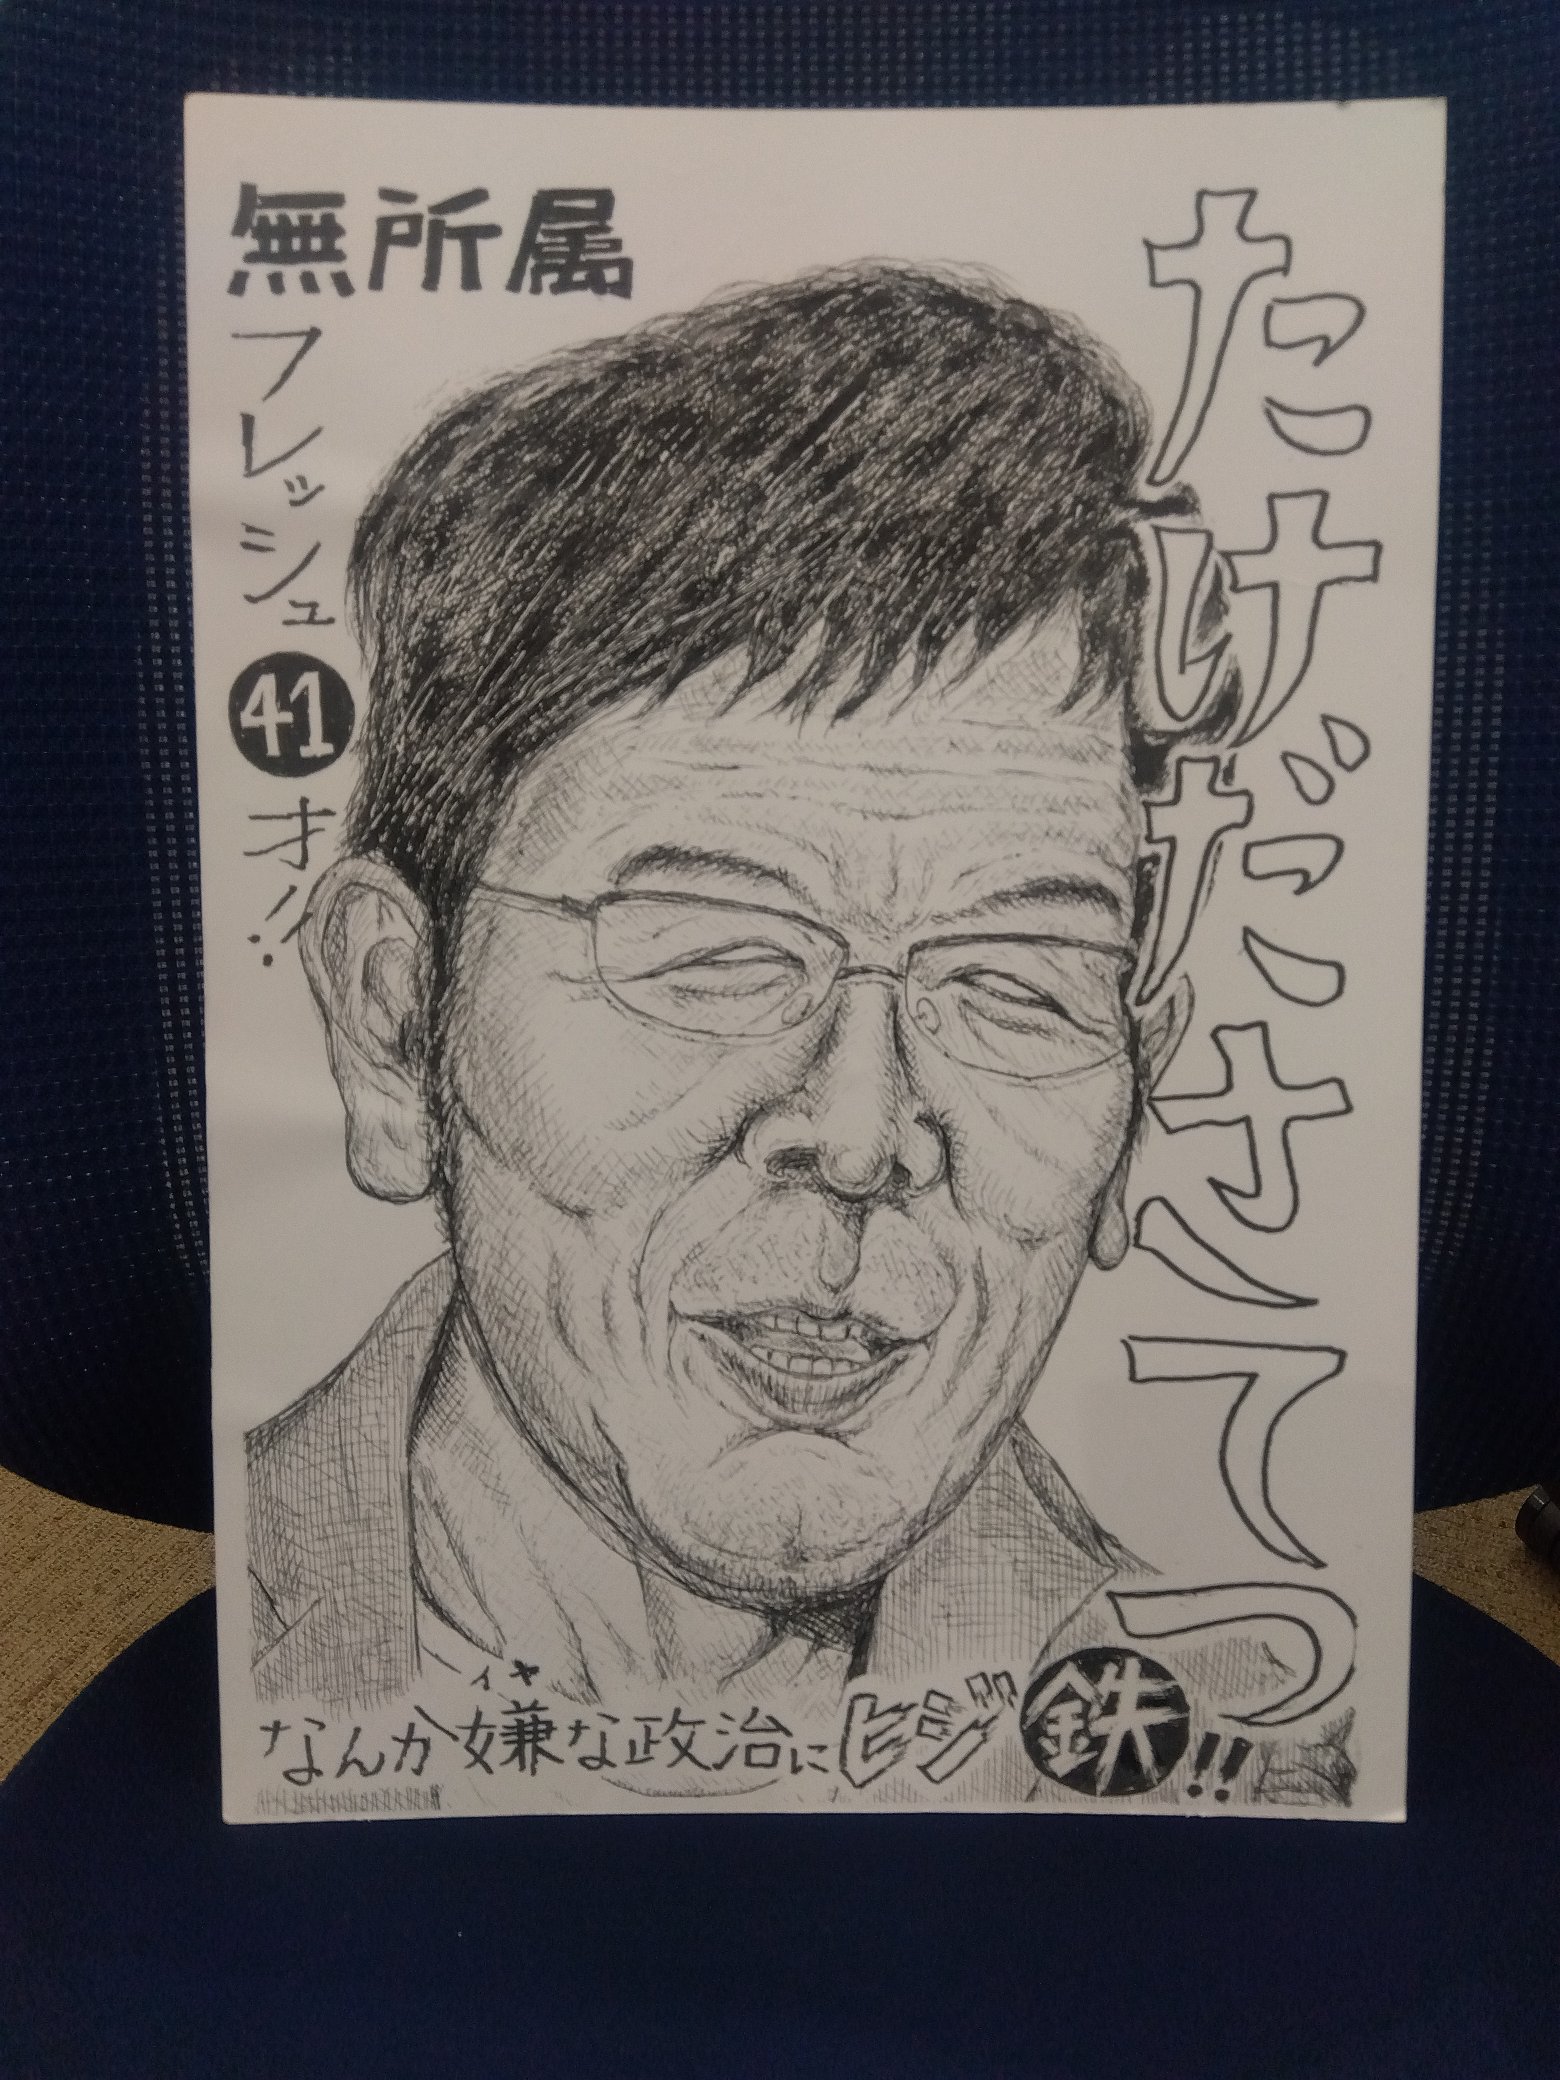 たけださてつ
無所属
フレッシュ41才!!
イヤ
なんか嫌な政治にヒジ鉄!!